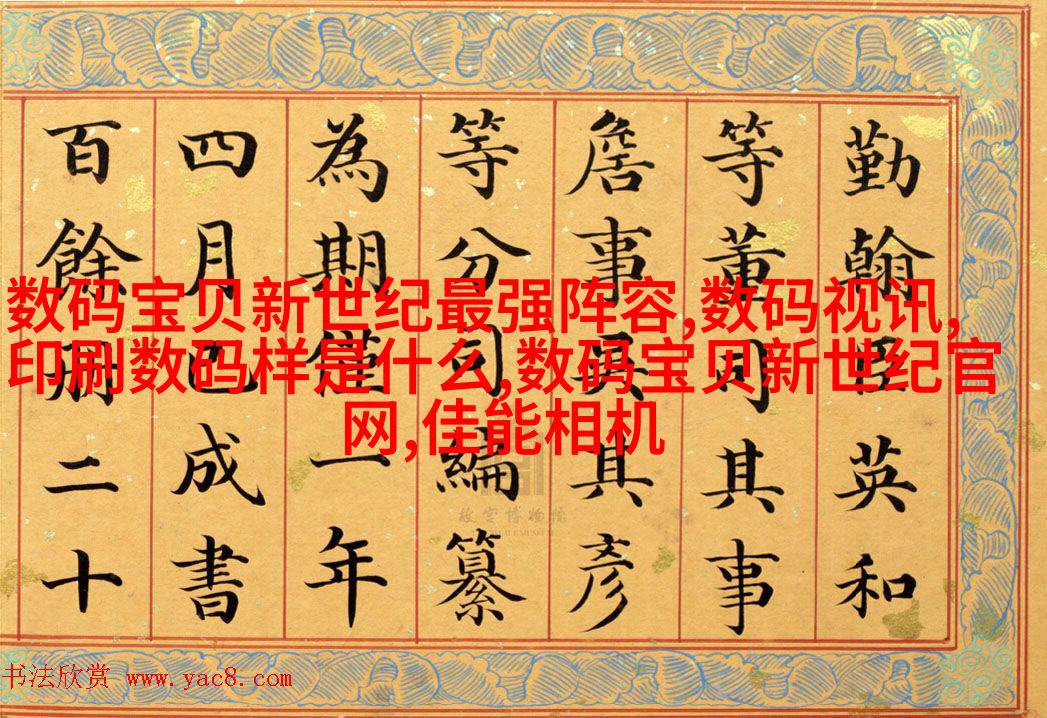 勤翰臣英和
等董司其事
詹事吳其彥
等分司編纂
為期僅一年
四月已成書
百餘冊二十
数码宝贝新世纪最强阵容,数码视讯,
印刷数码样是什么,数码宝贝新世纪官
网,佳能相机
故宫博物院
书法欣赏 www.yac8.com